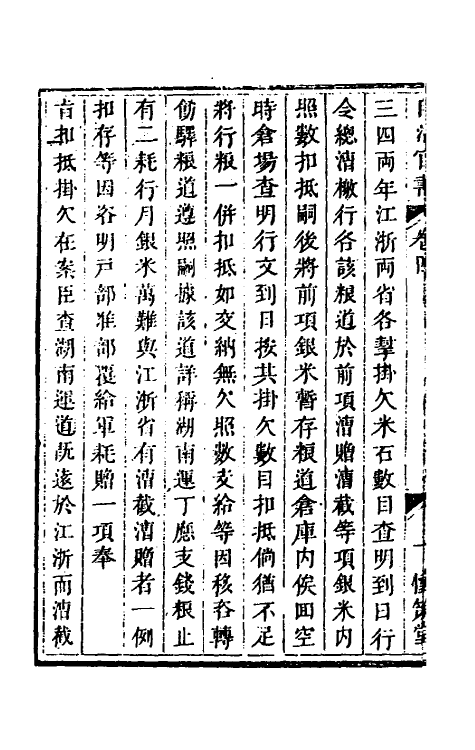 三四兩年江浙兩省各幫掛欠米石數目查明到日行
令總漕檄行各該粮道於前項漕贈漕截等項銀米內
照數扣抵嗣後將前項銀米暫存粮道倉庫內俟囬空
時倉場查明行文到日按其掛欠數目扣抵倘猶不足
將行粮一併扣抵如交納無欠照數支給等因移咨轉
飭驛粮道遵照嗣據該道詳稱湖南運丁應支錢粮止
有二耗行月銀米萬難與江浙省有漕截漕贈者一例
扣存等因咨明戸部准部覆給軍耗贈一項奉
旨扣抵掛欠在案臣查湖南運道旣遠於江浙而漕截